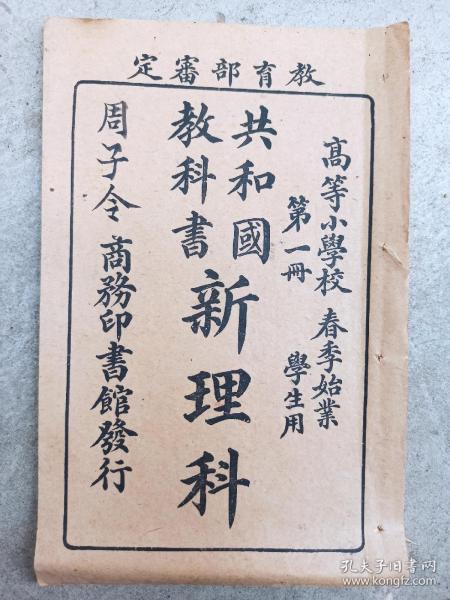 教育部審定
高等小學校 春季始業
第一冊 學生用
共和國
教科書
新理科
周子令 商務印書館發行
孔夫子旧书网
www.kongfz.com